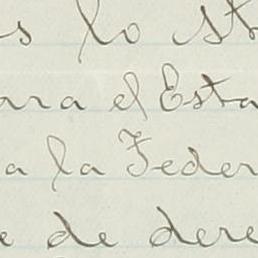 s lo
ara el Esta
a la Feder
e de dere